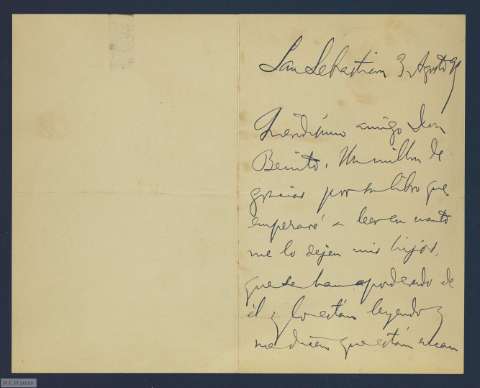 San Sebastian 3, Agosto 99
Queridísimo amigo Don
Benito. Un millon de
gracias por su libro que
empezaré a leer en cuanto
me lo dejen mis hijos,
que se han apoderado de
él y lo están leyendo y
me dicen que están